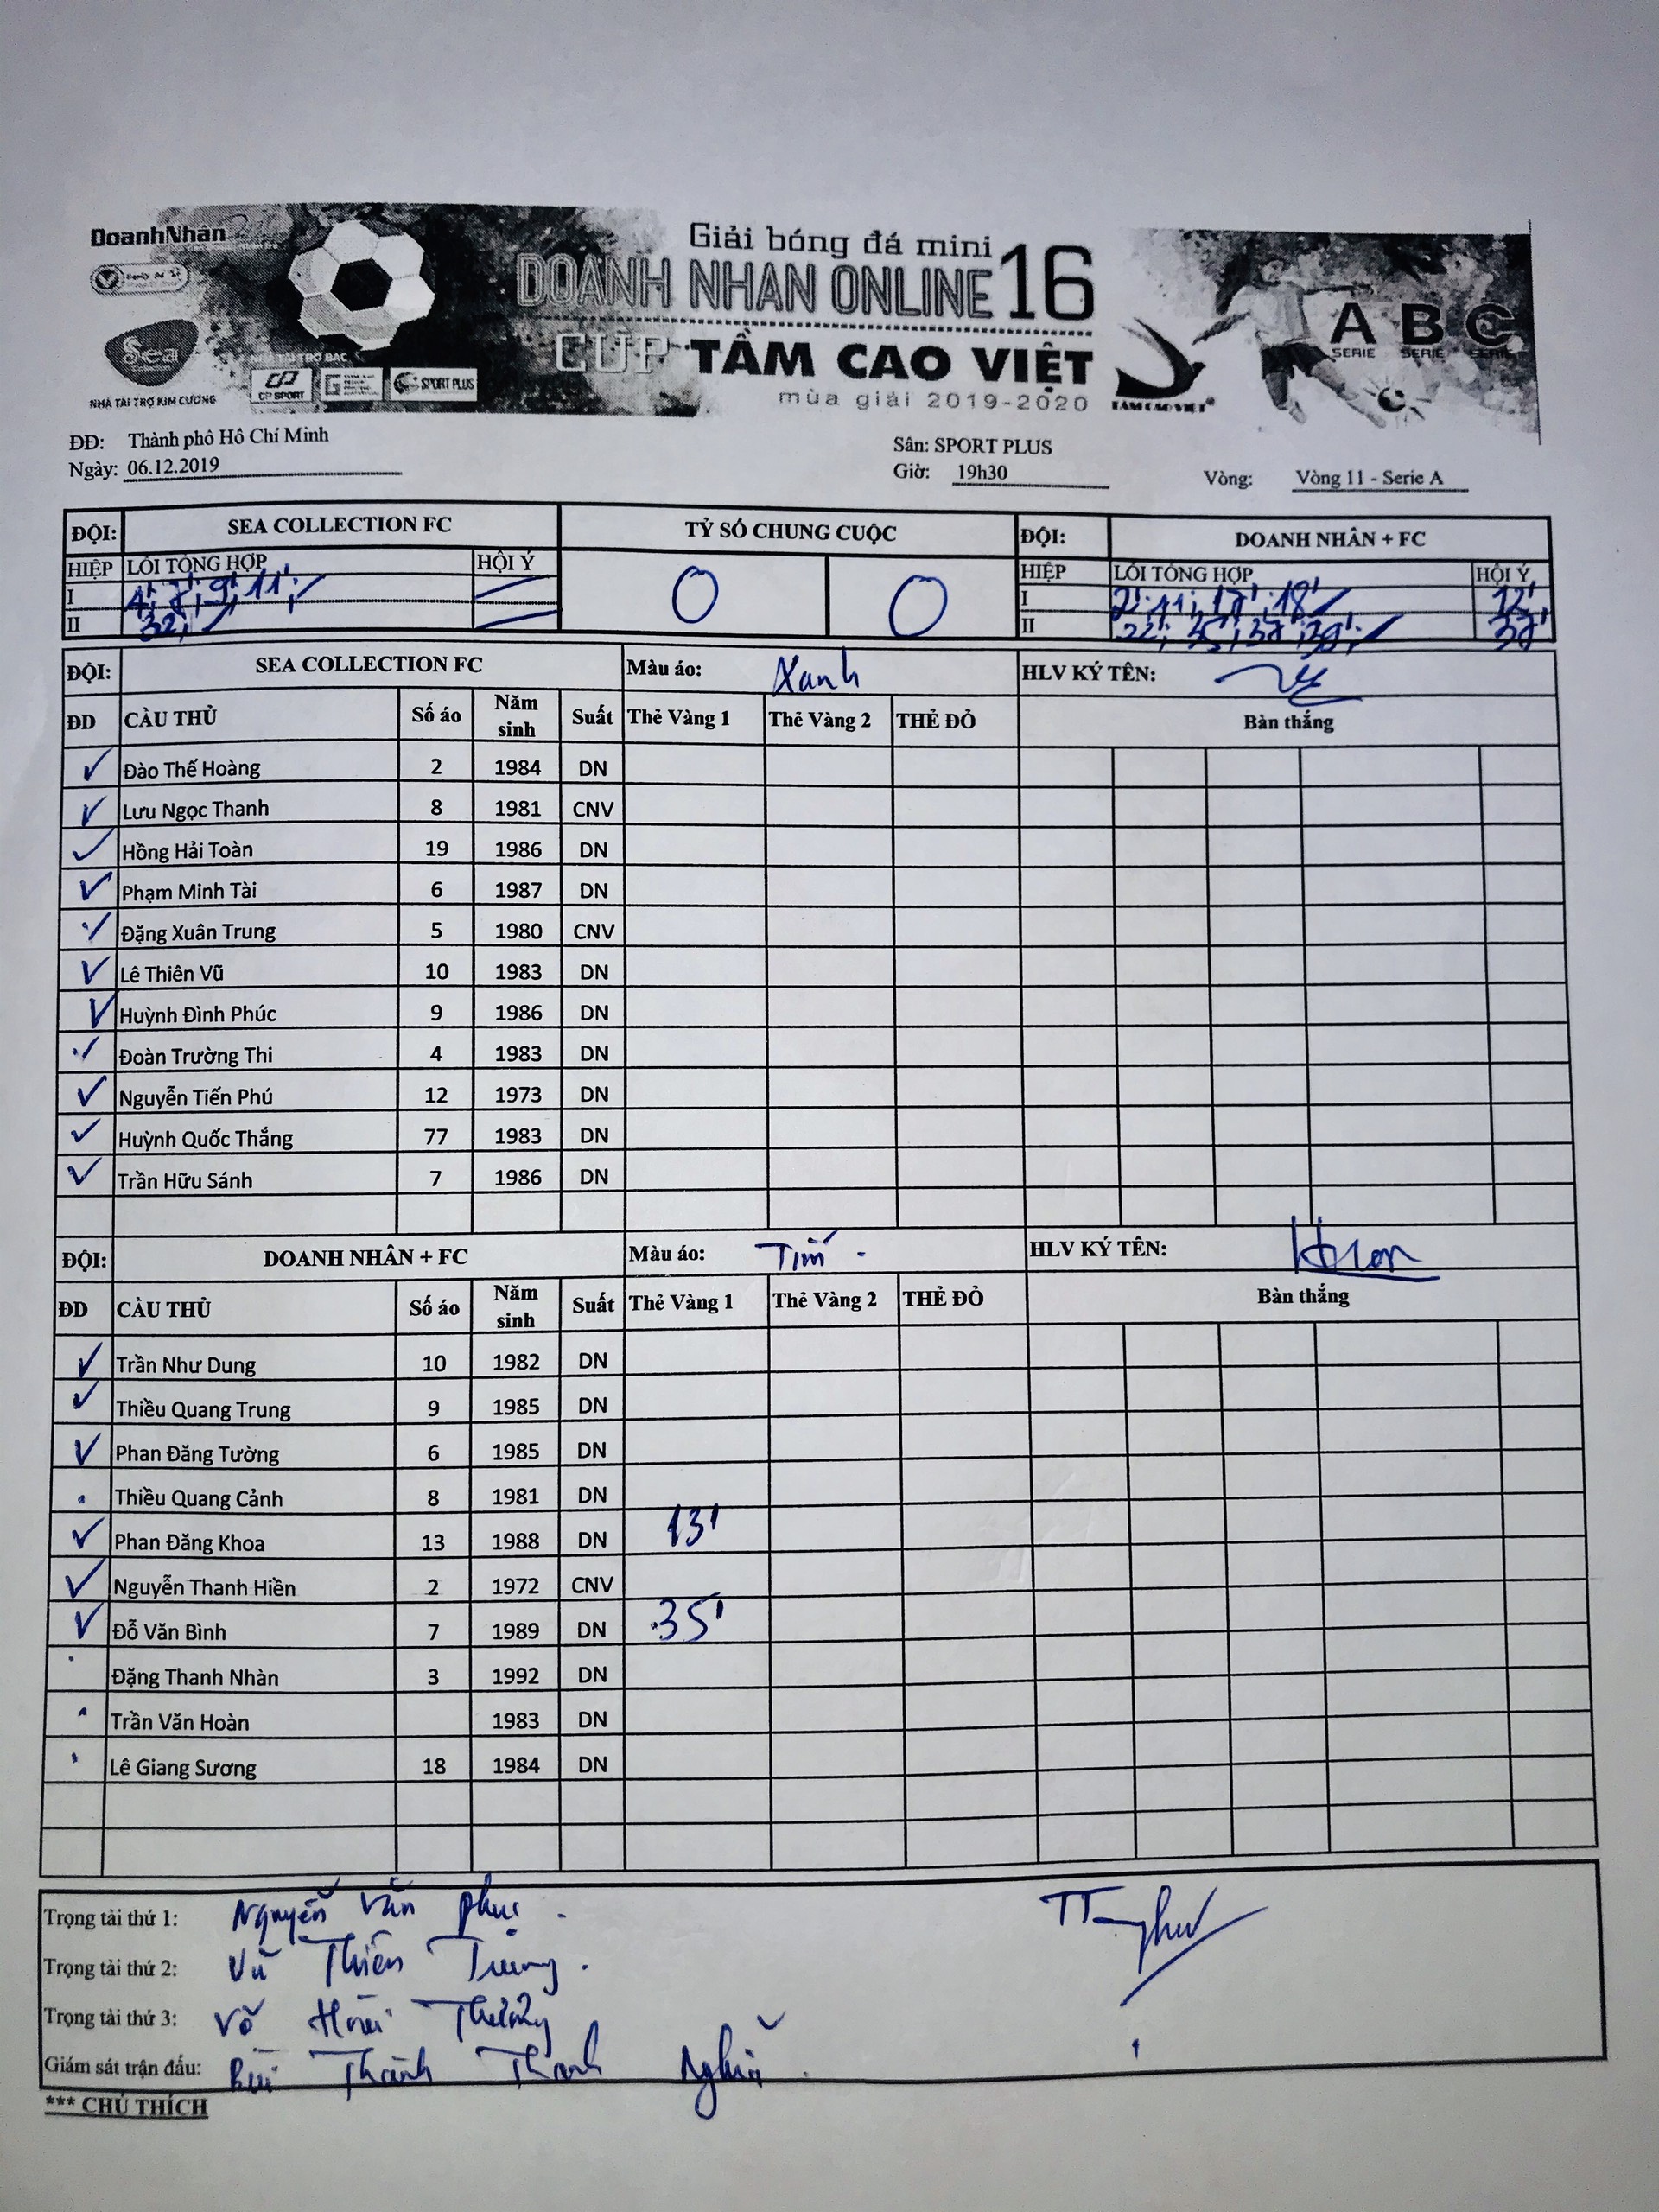 DoanhNhân
Giải bóng đá mini
DOANH NHAN ONLINE 16
CUP TẦM CAO VIỆT
mùa giải 2019-2020
Sea
NHÀ TÀI TRỢ BẠC
CP SPORT
SPORT PLUS
NHÀ TÀI TRỢ KIM CƯƠNG
TAM CAO VIET
A B C
SERIE SERIE SERIE
ĐĐ: Thành phố Hồ Chí Minh
Sân: SPORT PLUS
Ngày: 06.12.2019 Giờ: 19h30 Vòng: Vòng 11 - Serie A
ĐỘI: SEA COLLECTION FC TỶ SỐ CHUNG CUỘC ĐỘI: DOANH NHÂN + FC
HIỆP LỖI TỔNG HỢP HỘI Ý 0 0 HIỆP LỖI TỔNG HỢP HỘI Ý
I 4'; 7'; 9'; 11'; I 2'; 11'; 17'; 18' 12'
II 32'; II 22'; 35'; 37'; 39'; 37'
ĐỘI: SEA COLLECTION FC Màu áo: Xanh HLV KÝ TÊN:
ĐD CẦU THỦ Số áo Năm sinh Suất Thẻ Vàng 1 Thẻ Vàng 2 THẺ ĐỎ Bàn thắng
Đào Thế Hoàng 2 1984 DN
Lưu Ngọc Thanh 8 1981 CNV
Hồng Hải Toàn 19 1986 DN
Phạm Minh Tài 6 1987 DN
Đặng Xuân Trung 5 1980 CNV
Lê Thiên Vũ 10 1983 DN
Huỳnh Đình Phúc 9 1986 DN
Đoàn Trường Thi 4 1983 DN
Nguyễn Tiến Phú 12 1973 DN
Huỳnh Quốc Thắng 77 1983 DN
Trần Hữu Sánh 7 1986 DN
ĐỘI: DOANH NHÂN + FC Màu áo: Tím HLV KÝ TÊN:
ĐD CẦU THỦ Số áo Năm sinh Suất Thẻ Vàng 1 Thẻ Vàng 2 THẺ ĐỎ Bàn thắng
Trần Như Dung 10 1982 DN
Thiều Quang Trung 9 1985 DN
Phan Đăng Tường 6 1985 DN
Thiều Quang Cảnh 8 1981 DN
Phan Đăng Khoa 13 1988 DN 13'
Nguyễn Thanh Hiền 2 1972 CNV
Đỗ Văn Bình 7 1989 DN 35'
Đặng Thanh Nhàn 3 1992 DN
Trần Văn Hoàn 1983 DN
Lê Giang Sương 18 1984 DN
Trọng tài thứ 1: Nguyễn Văn Phúc
Trọng tài thứ 2: Vũ Thiên Trung
Trọng tài thứ 3: Võ Hoài Thương
Giám sát trận đấu: Bùi Thành Thanh Nghĩa
*** CHÚ THÍCH